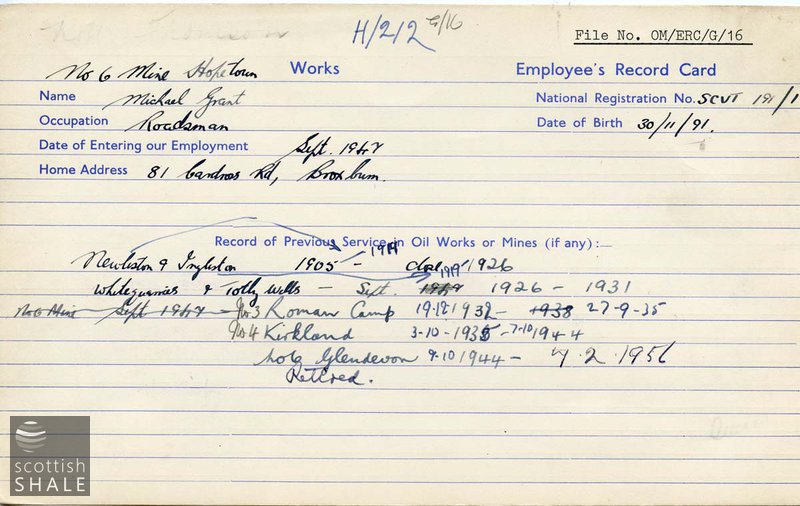 H/212 G/16
File No. OM/ERC/G/16
No 6 Mine Hopetown Works Employee's Record Card
Name Michael Grant National Registration No. SCVT 191/1
Occupation Roadsman Date of Birth 30/11/91.
Date of Entering our Employment Sept. 1942
Home Address 81 Cardross Rd, Broxburn.
Record of Previous Service in Oil Works or Mines (if any):—
1919
Newliston & Ingliston 1905 - close 1926
1919
Whitequarries & Totley Wells - Sept. 1926 - 1931
No 6 Mine Sept 1942 No 3 Roman Camp 19.12 1932 - 1938 27-9-35
No 4 Kirkland 3-10-1935 - 7-10 1944
No 6 Glendevon 9.10 1944 - 2.1956
Retired.
scottish
SHALE